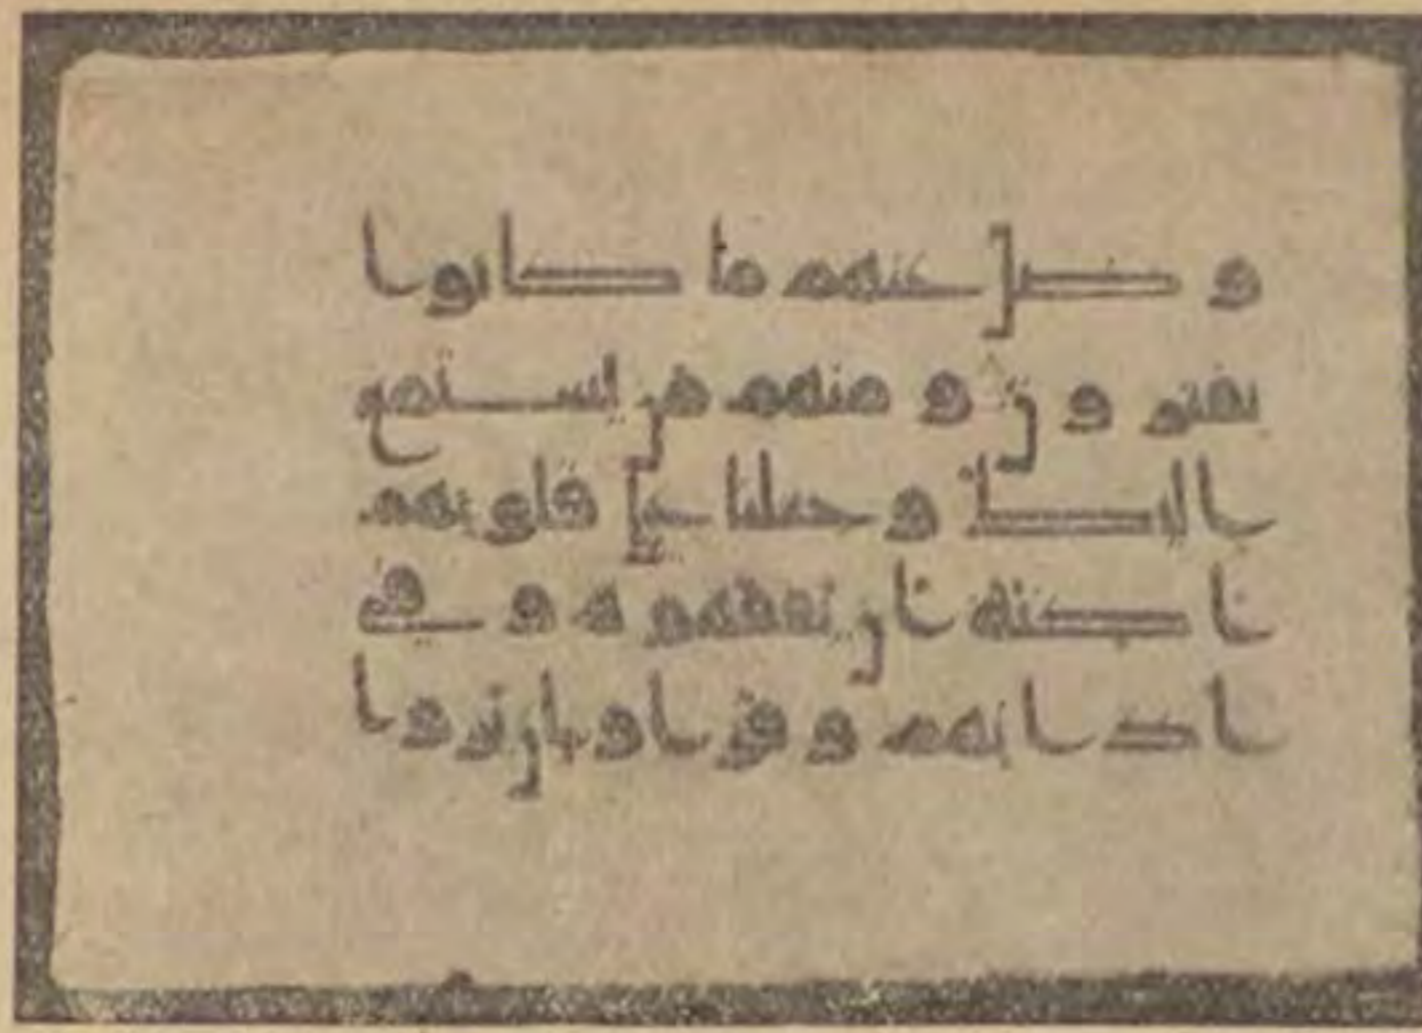 و ضل عنهم ما كانوا
يفترون و منهم من يستمع
اليك و جعلنا على قلوبهم
اكنة ان يفقهوه و في
اذانهم وقرا و ان يروا